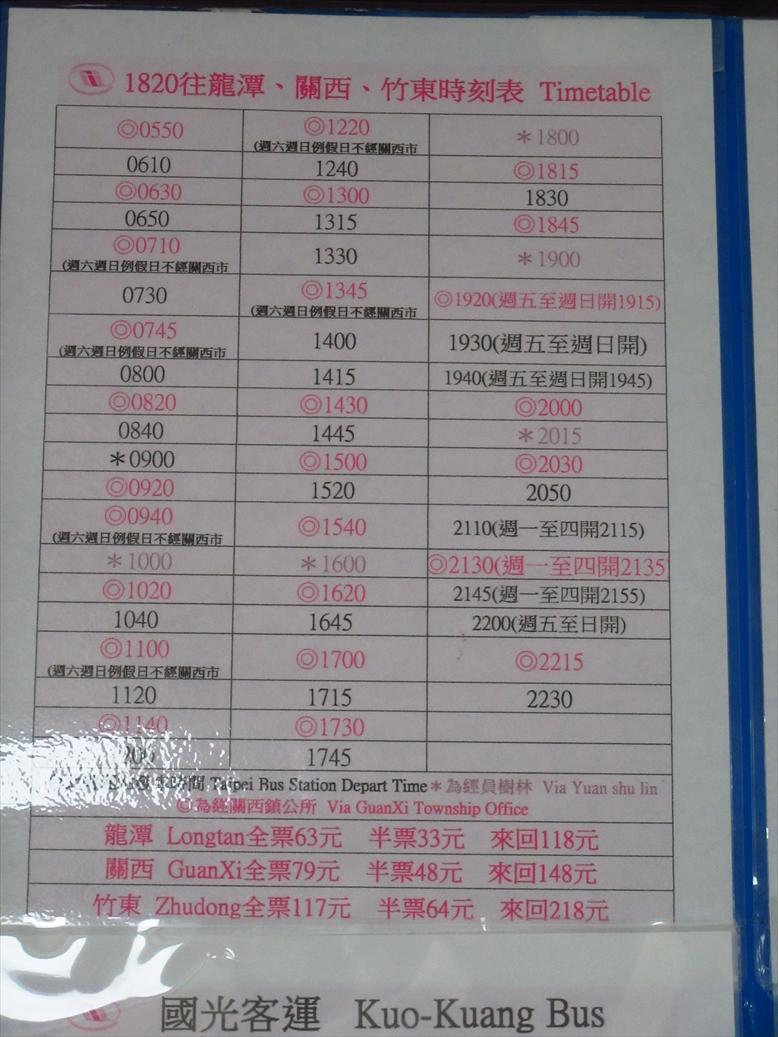 1820往龍潭、關西、竹東時刻表 Timetable
◎0550
◎1220
(週六週日例假日不經關西市
*1800
0610
1240
◎1815
◎0630
◎1300
1830
0650
1315
◎1845
◎0710
(週六週日例假日不經關西市
1330
*1900
0730
◎1345
(週六週日例假日不經關西市
◎1920(週五至週日開1915)
◎0745
(週六週日例假日不經關西市
1400
1930(週五至週日開)
0800
1415
1940(週五至週日開1945)
◎0820
◎1430
◎2000
0840
1445
*2015
*0900
◎1500
◎2030
◎0920
1520
2050
◎0940
(週六週日例假日不經關西市
◎1540
2110(週一至四開2115)
*1000
*1600
◎2130(週一至四開2135
◎1020
◎1620
2145(週一至四開2155)
1040
1645
2200(週五至日開)
◎1100
(週六週日例假日不經關西市
◎1700
◎2215
1120
1715
2230
◎1140
◎1730
1745
時間 Taipei Bus Station Depart Time *為經員樹林 Via Yuan shu lin
◎為經關西鎮公所 Via GuanXi Township Office
龍潭 Longtan全票63元 半票33元 來回118元
關西 GuanXi全票79元 半票48元 來回148元
竹東 Zhudong全票117元 半票64元 來回218元
國光客運 Kuo-Kuang Bus